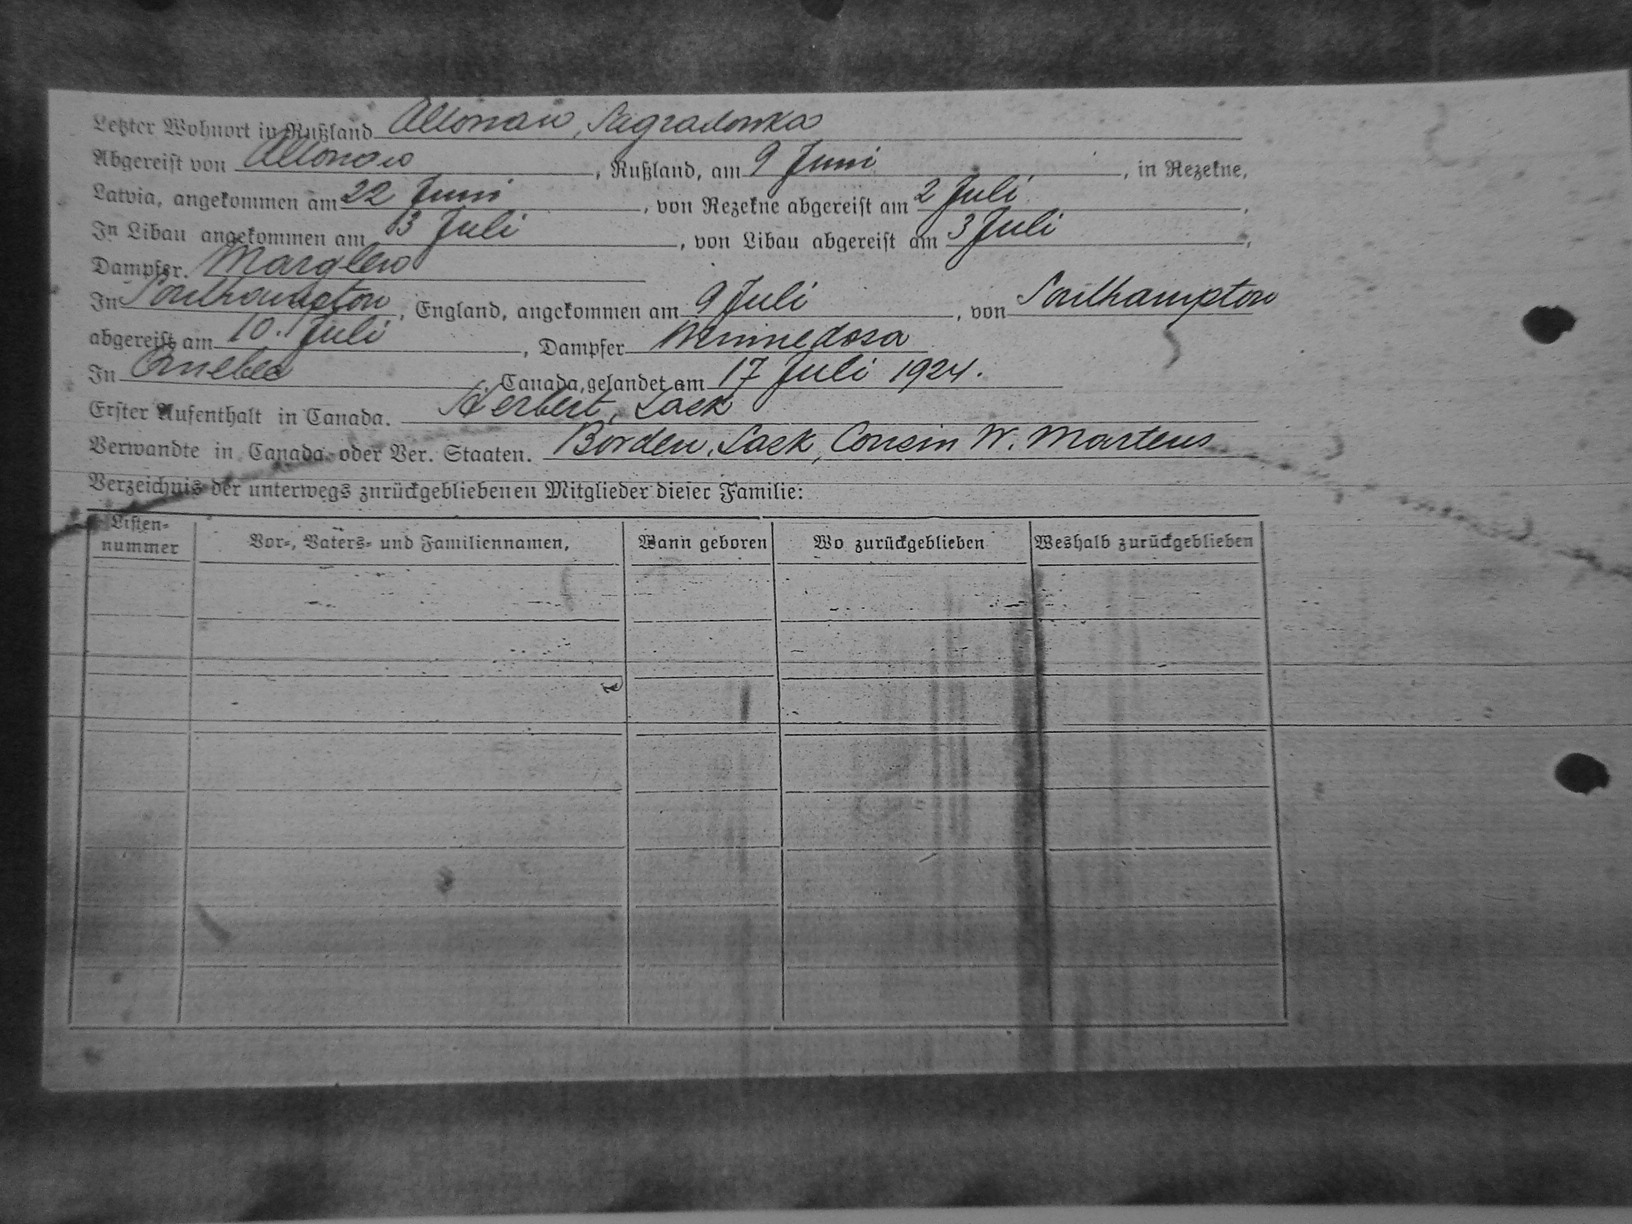 Letzter Wohnort in Rußland Altonau, Sagradowka
Abgereist von Altonau, Rußland, am 9 Juni, in Rezekne,
Latvia, angekommen am 22 Juni, von Rezekne abgereist am 2 Juli,
In Libau angekommen am 3 Juli, von Libau abgereist am 3 Juli,
Dampfer. Marglen
In Southampton, England, angekommen am 9 Juli, von Southampton
abgereist am 10. Juli, Dampfer Minnedosa
In Quebec, Canada, gelandet am 17 Juli 1924.
Erster Aufenthalt in Canada. Herbert, Sask
Verwandte in Canada oder Ver. Staaten. Borden, Sask, Cousin W. Martens
Verzeichnis der unterwegs zurückgebliebenen Mitglieder dieser Familie:
Listen-
nummer Vor-, Vaters- und Familiennamen, Wann geboren Wo zurückgeblieben Weshalb zurückgeblieben